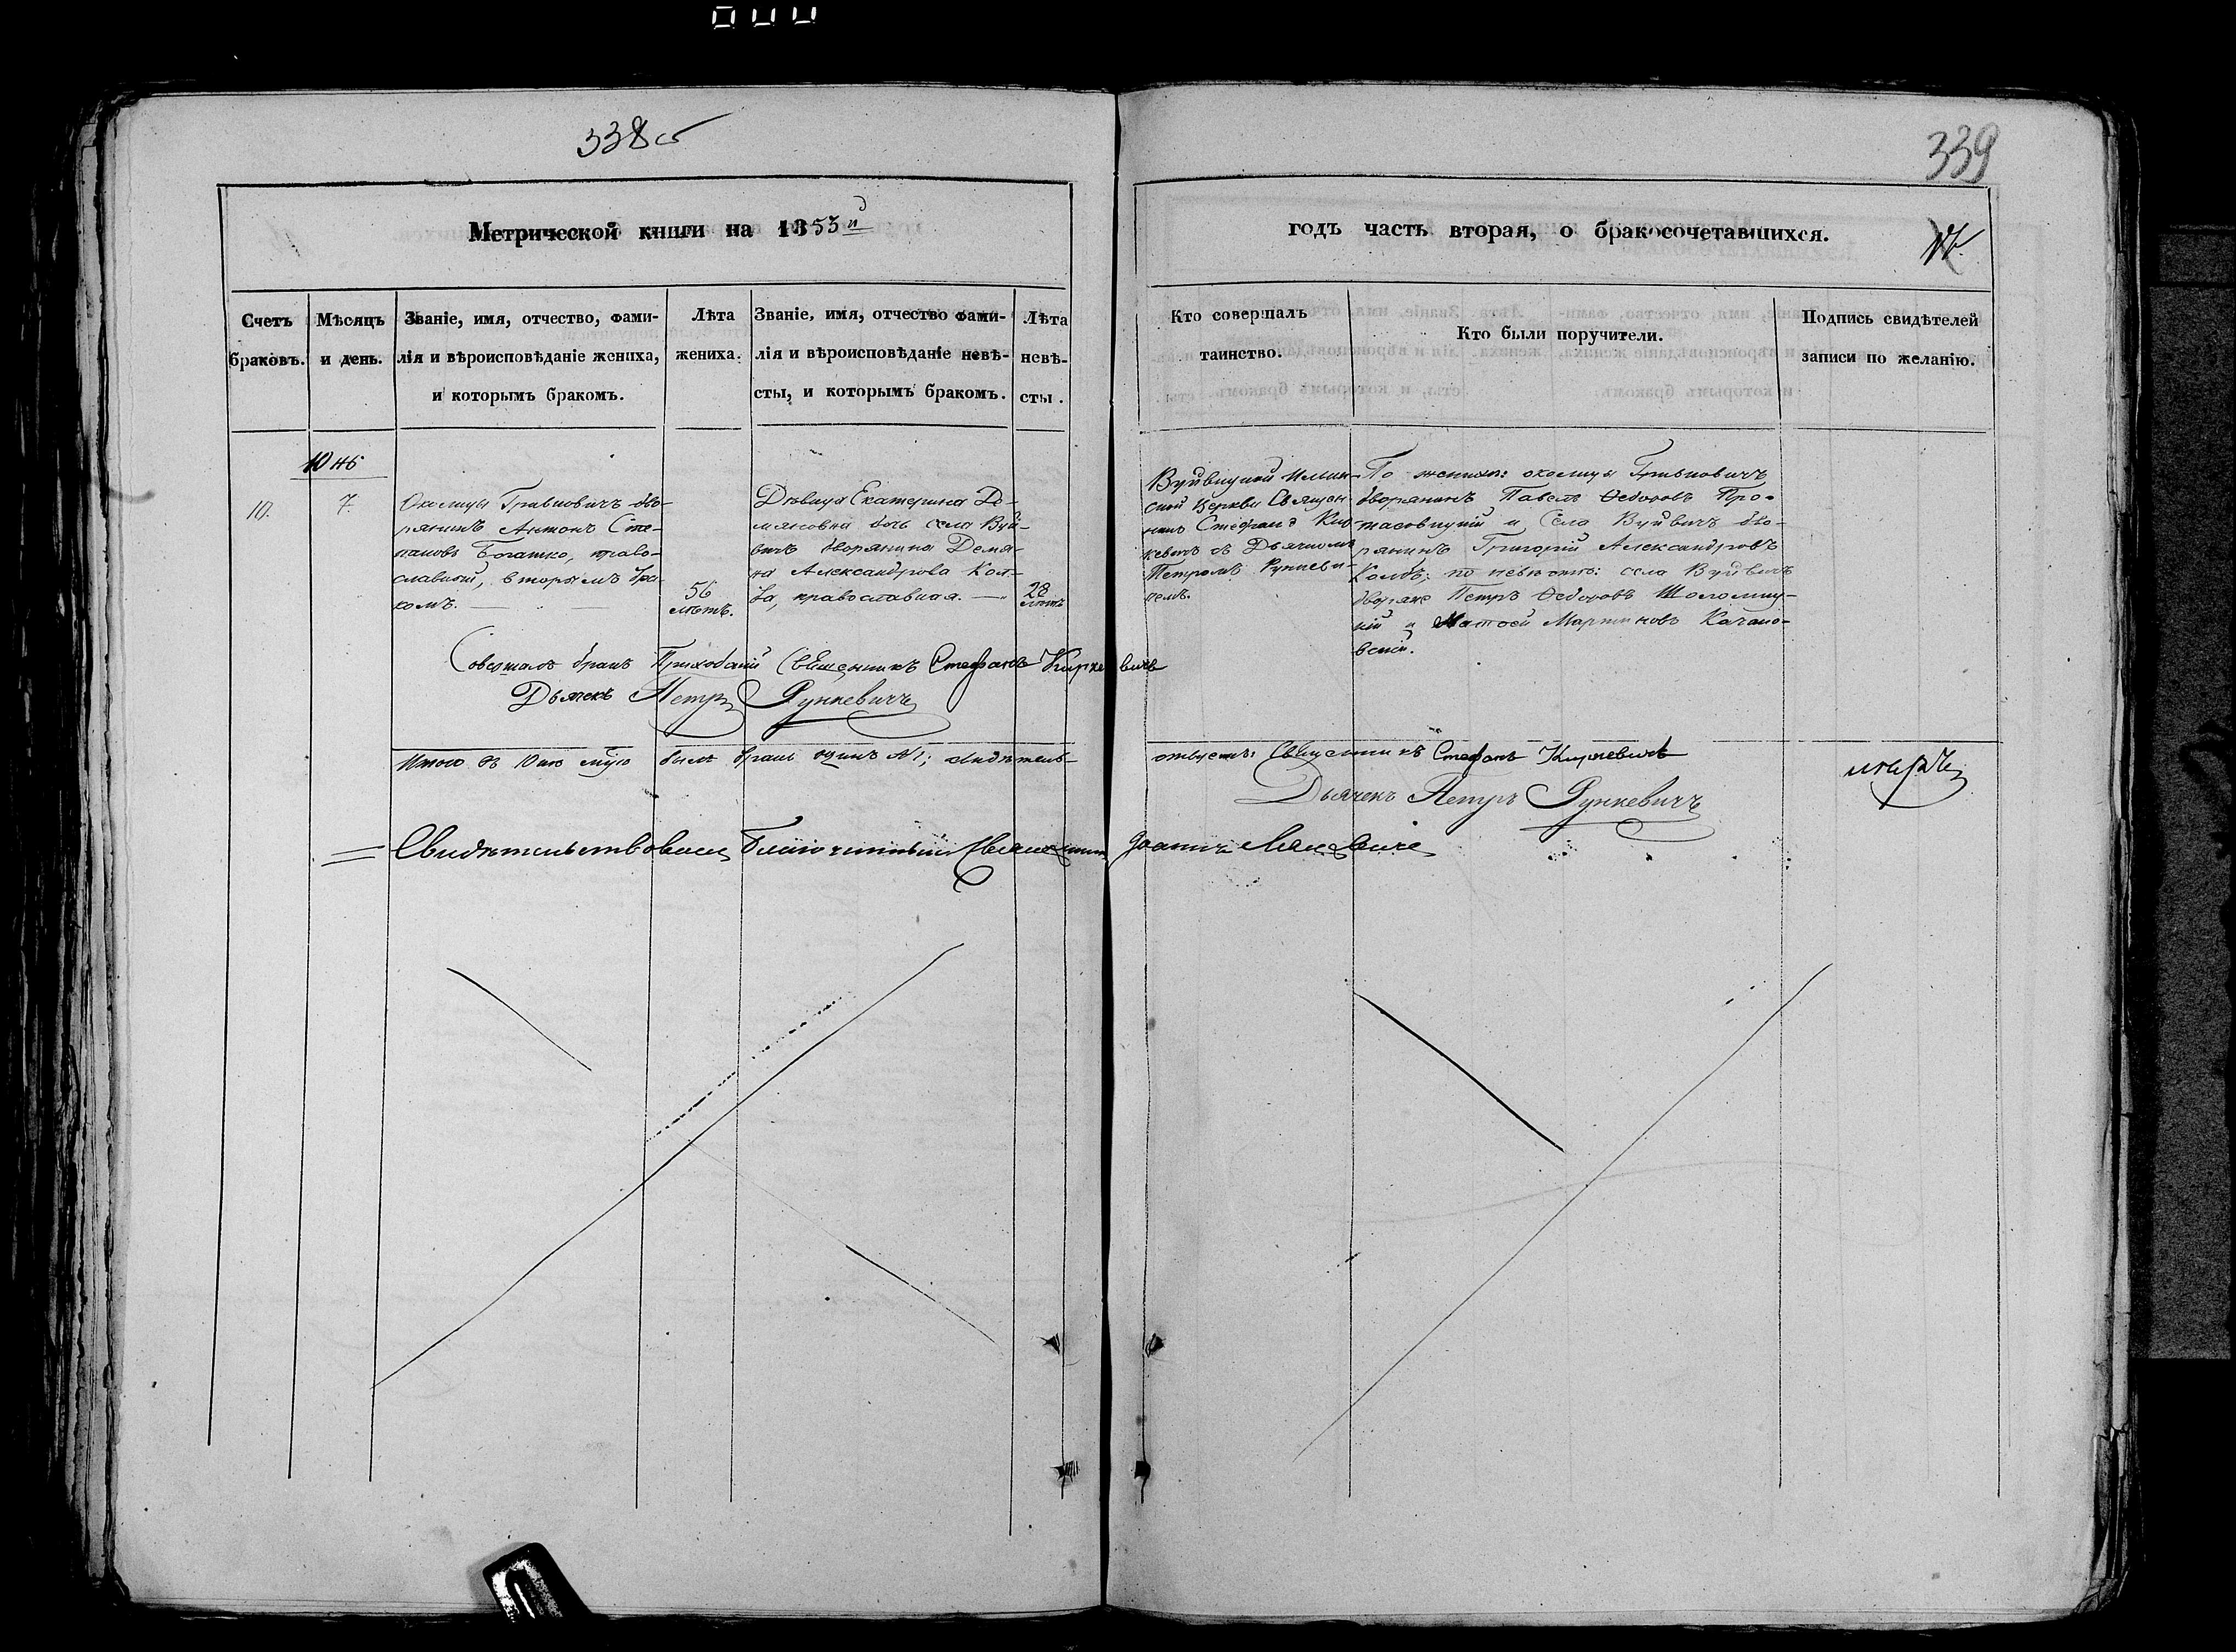 338 об
339
Метрической книги на 1853й
годъ часть вторая, о бракосочетавшихся.
Счетъ
браковъ.
Мѣсяцъ
и день.
Званіе, имя, отчество, фами-
лія и вѣроисповѣданіе жениха,
и которымъ бракомъ.
Лѣта
жениха.
Званіе, имя, отчество фами-
лія и вѣроисповѣданіе невѣ-
сты, и которымъ бракомъ.
Лѣта
невѣ-
сты.
Кто совершалъ
таинство.
Кто были поручители.
Подпись свидѣтелей
записи по желанію.
Юнь
10.
7.
Околицы Грабновичъ дво-
рянинъ Антонъ Сте-
пановъ Богатко, право-
славный, вторымъ бра-
комъ.
56
лѣтъ.
Дѣвица Екатерина Де-
мяновна дочь села Вуй-
вичъ дворянина Демя-
на Александрова Кол-
ба, православная.
28
лѣтъ
Вуйвицкой Ильин-
ской Церкви Священ-
никъ Стефанъ Кир-
кевичъ съ Дьячкомъ
Петромъ Рункеви-
чемъ.
По женихѣ: околицы Грабновичъ
дворянинъ Павелъ Ѳедоровъ Про-
тасовицкій и Села Вуйвичъ дво-
рянинъ Григорій Александровъ
Колбъ; по невѣстѣ: села Вуйвичъ
дворяне Петръ Ѳедоровъ Шоломиц-
кій и Матѳей Мартиновъ Качано-
вскій.
Совершалъ бракъ Приходскій Священникъ Стефанъ Киркевичъ
Дьячекъ Петръ Рункевичъ
Итого въ Юнѣ мцѣ былъ бракъ одинъ №1; свидѣтель-
ствуемъ: Священникъ Стефанъ Киркевичъ
Дьячекъ Петръ Рункевичъ
Свидѣтельствовалъ Благочинный Священникъ Іоаннъ